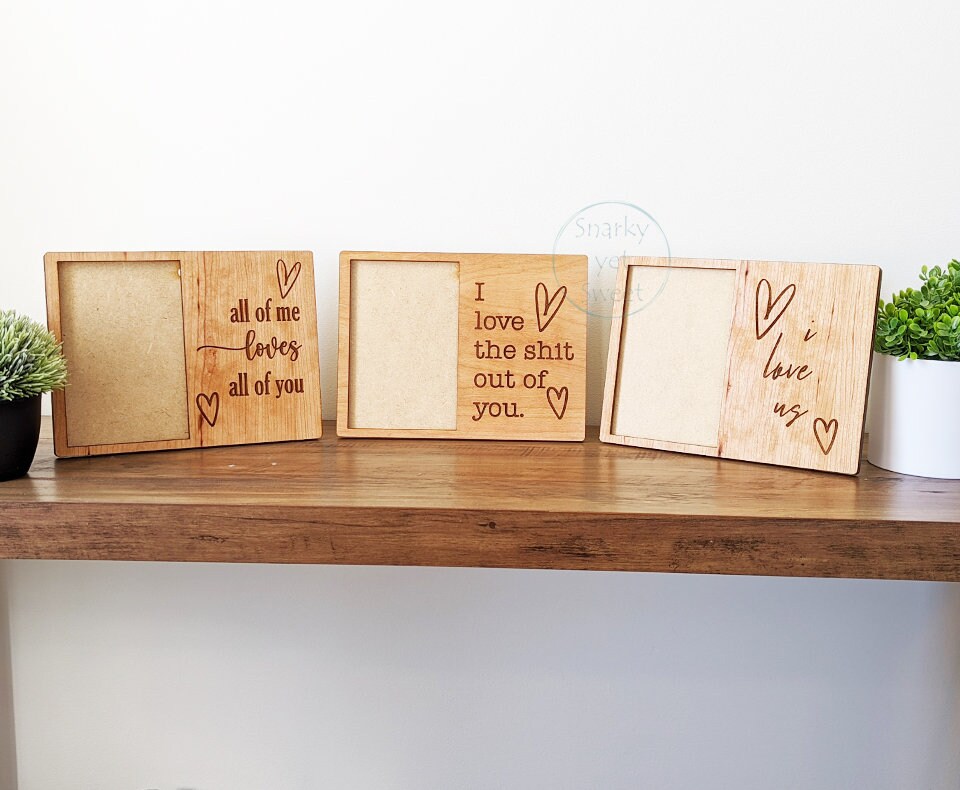 all of me
loves
all of you
I
love
the shit
out of
you.
Snarky
yet
sweet
i
love
us